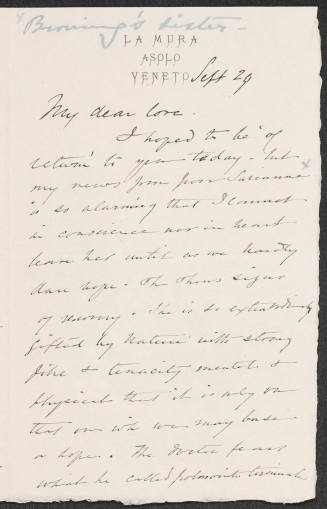 Browning's sister -
LA MURA
ASOLO
VENETO
Sept 29
My dear love.
I hoped to be "of
return" to you today - but
my news from poor Sarianna x
is so alarming that I cannot
in conscience nor in heart
leave her until as we hardly
dare hope. She shows signs
of recovery. She is so extraordinarily
gifted by Nature with strong
fibre & tenacity mental &
physical that it is only on
that one we may base
a hope. The doctor fears
what he called